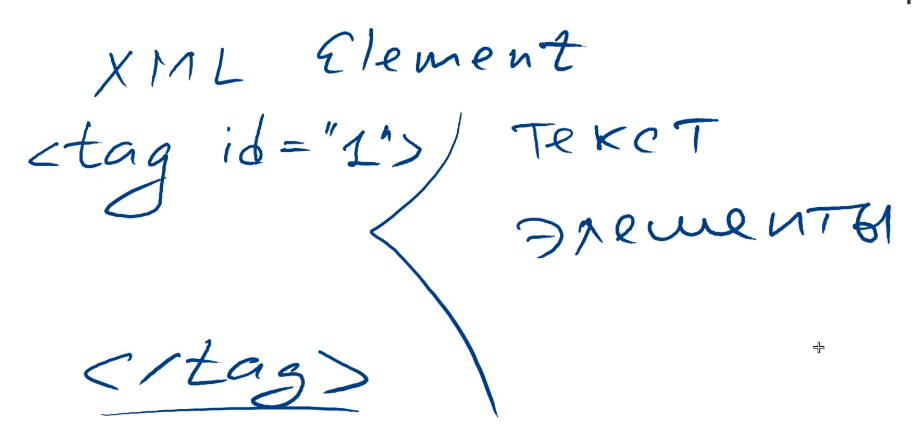 XML Element
<tag id="1">
текст
элементы
</tag>